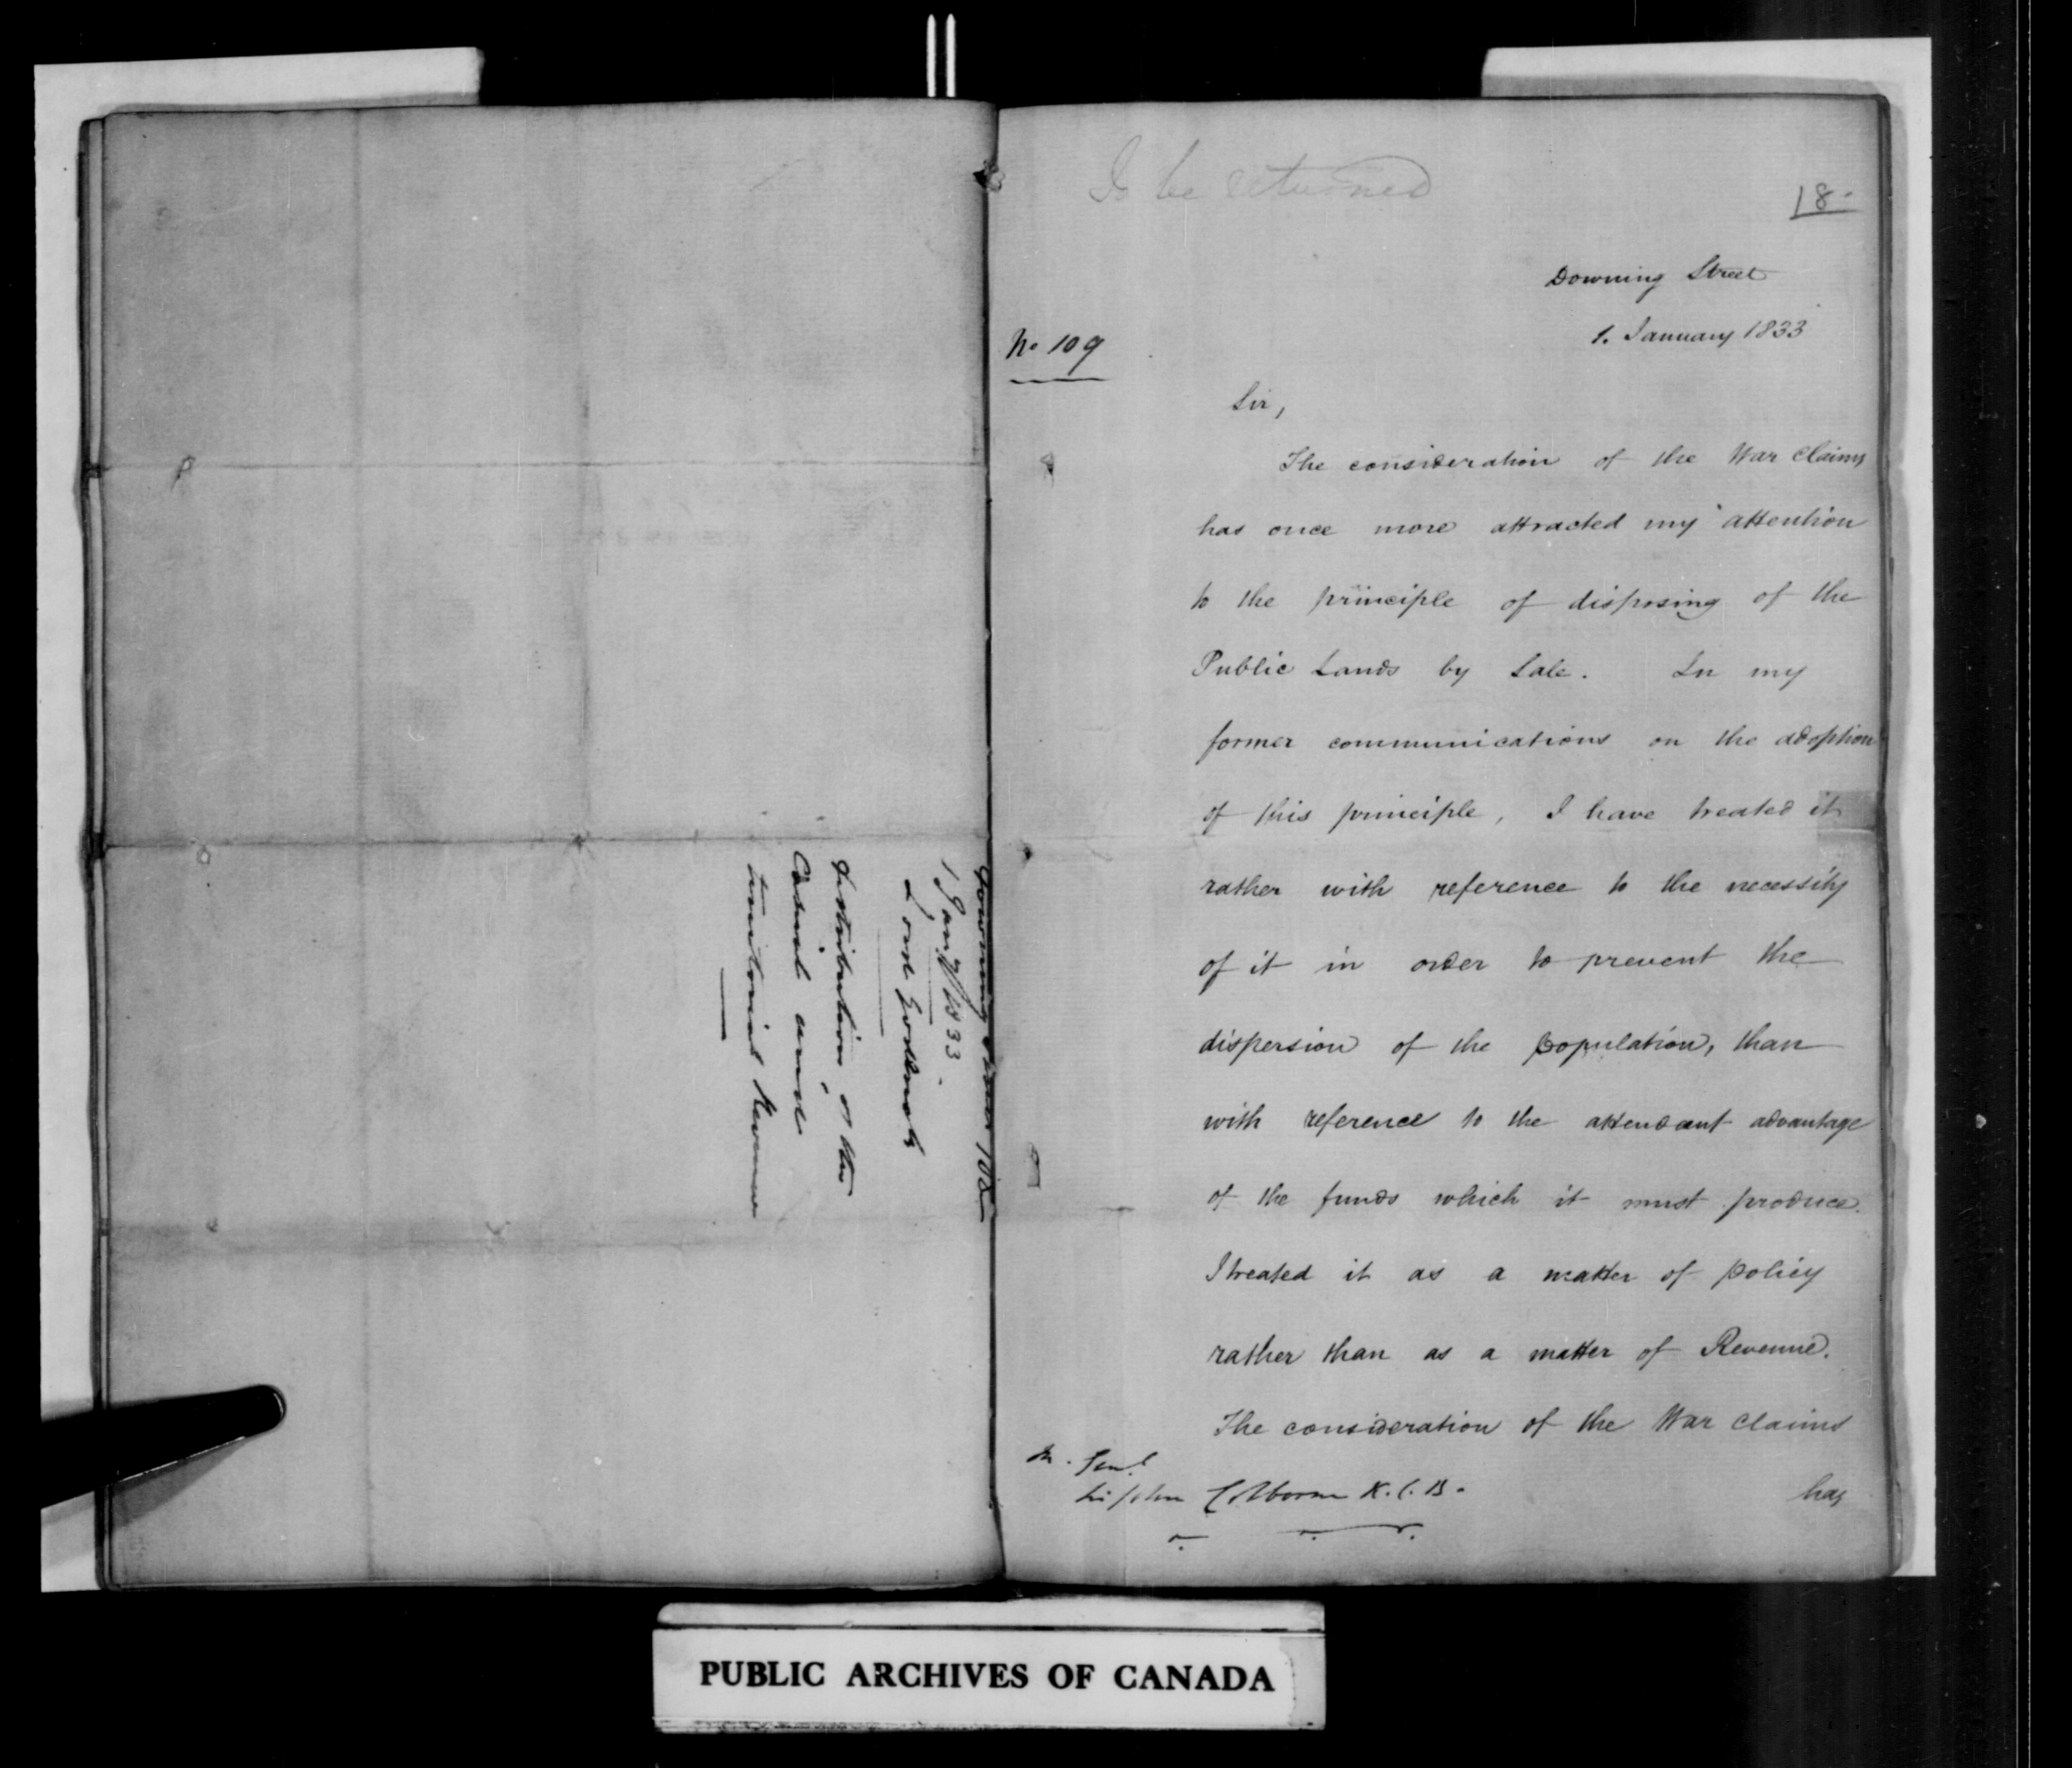 Downing Street 108
1 Jany 1833.
Lord Goderich
Distribution of the
Casual and
Territorial Revenue
To be returned
18.
Downing Street
1. January 1833
No 109
Sir,
The consideration of the War Claims
has once more attracted my attention
to the principle of disposing of the
Public Lands by Sale. In my
former communications on the adoption
of this principle, I have treated it
rather with reference to the necessity
of it in order to prevent the
dispersion of the population, than
with reference to the attendant advantage
of the funds which it must produce.
I treated it as a matter of policy
rather than as a matter of Revenue.
The consideration of the War Claims
has
M. Genl
Sir John Colborne K.C.B.
PUBLIC ARCHIVES OF CANADA